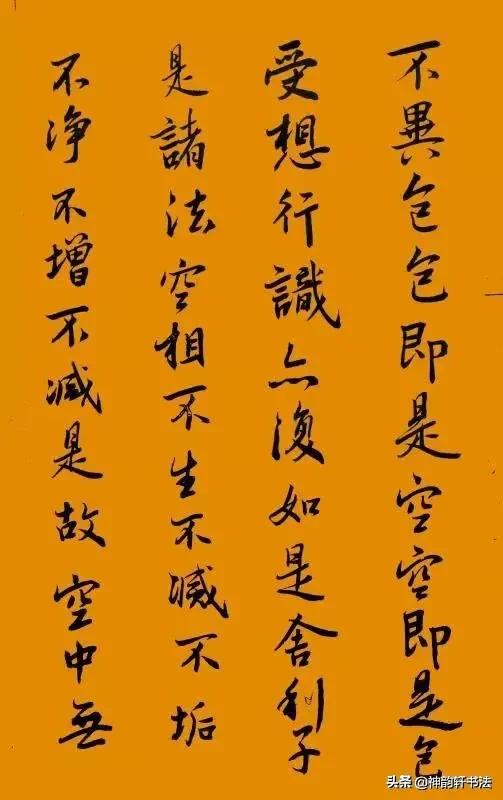 不異色色即是空空即是色
受想行識亦復如是舍利子
是諸法空相不生不滅不垢
不净不增不减是故空中無
头条 @神韵轩书法